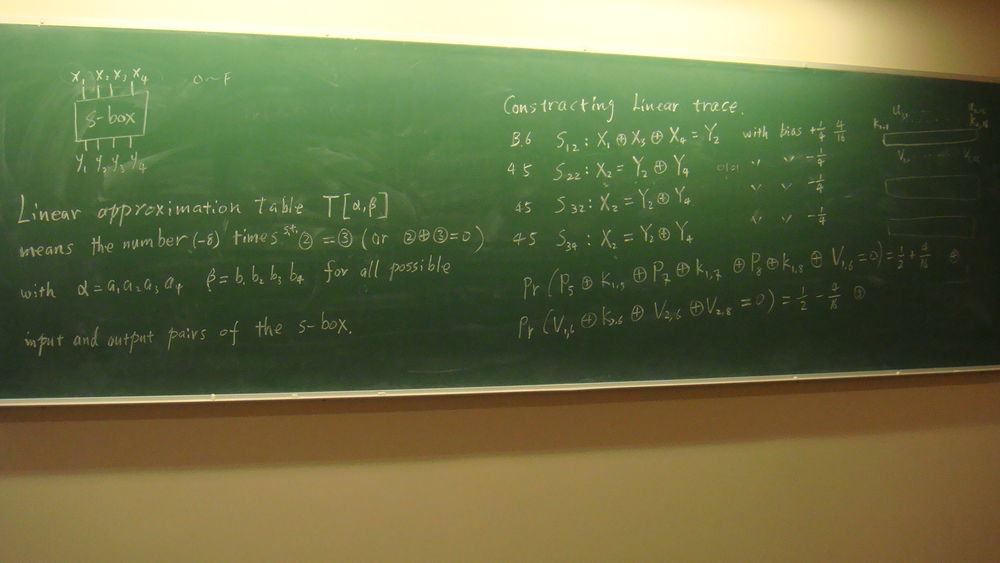 X₁ X₂ X₃ X₄
0~F
S-box
Y₁ Y₂ Y₃ Y₄
Linear approximation table T[α,β]
means the number (-8) times s.t. ② = ③ (or ② ⊕ ③ = 0)
with α = a₁ a₂ a₃ a₄ β = b₁ b₂ b₃ b₄ for all possible
input and output pairs of the s-box.
Constracting Linear trace.
B.6 S₁₂ : X₁ ⊕ X₃ ⊕ X₄ = Y₂ with bias +1/4 4/16
45 S₂₂ : X₂ = Y₂ ⊕ Y₄ 〃 〃 -1/4
45 S₃₂ : X₂ = Y₂ ⊕ Y₄ 〃 〃 -1/4
45 S₃₄ : X₂ = Y₂ ⊕ Y₄ 〃 〃 -1/4
Pr (P₅ ⊕ K₁,₅ ⊕ P₇ ⊕ K₁,₇ ⊕ P₈ ⊕ K₁,₈ ⊕ V₁,₆ = 0) = 1/2 + 4/16
Pr (V₁,₆ ⊕ K₂,₆ ⊕ V₂,₆ ⊕ V₂,₈ = 0) = 1/2 - 4/16